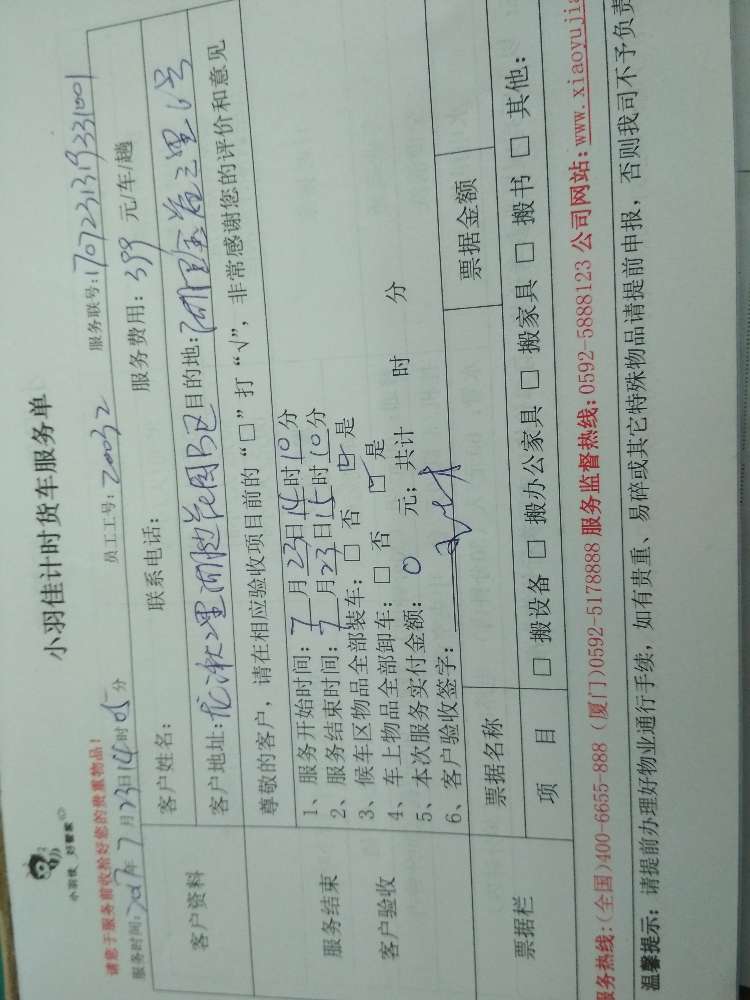 小羽佳计时货车服务单
小羽佳 好管家
请您于服务前收拾好您的贵重物品!
服务时间:2017年7月23日14时05分 员工工号:20032 服务联号:1707231319331001
客户资料
客户姓名: 联系电话: 服务费用:399 元/车/趟
客户地址: 目的地:
服务结束
客户验收
尊敬的客户,请在相应验收项目前的“□”打“√”,非常感谢您的评价和意见
1、服务开始时间:7月23日14时10分
2、服务结束时间:7月23日15时10分
3、候车区物品全部装车:□ 否 ☑ 是
4、车上物品全部卸车:□ 否 ☑ 是
5、本次服务实付金额:0 元;共计 时 分
6、客户验收签字:
票据栏
票据名称 票据金额
项 目 □ 搬设备 □ 搬办公家具 □ 搬家具 □ 搬书 □ 其他:
服务热线:(全国)400-6655-888 (厦门)0592-5178888 服务监督热线:0592-5888123 公司网站:www.xiaoyujia
温馨提示:请提前办理好物业通行手续,如有贵重、易碎或其它特殊物品请提前申报,否则我司不予负责